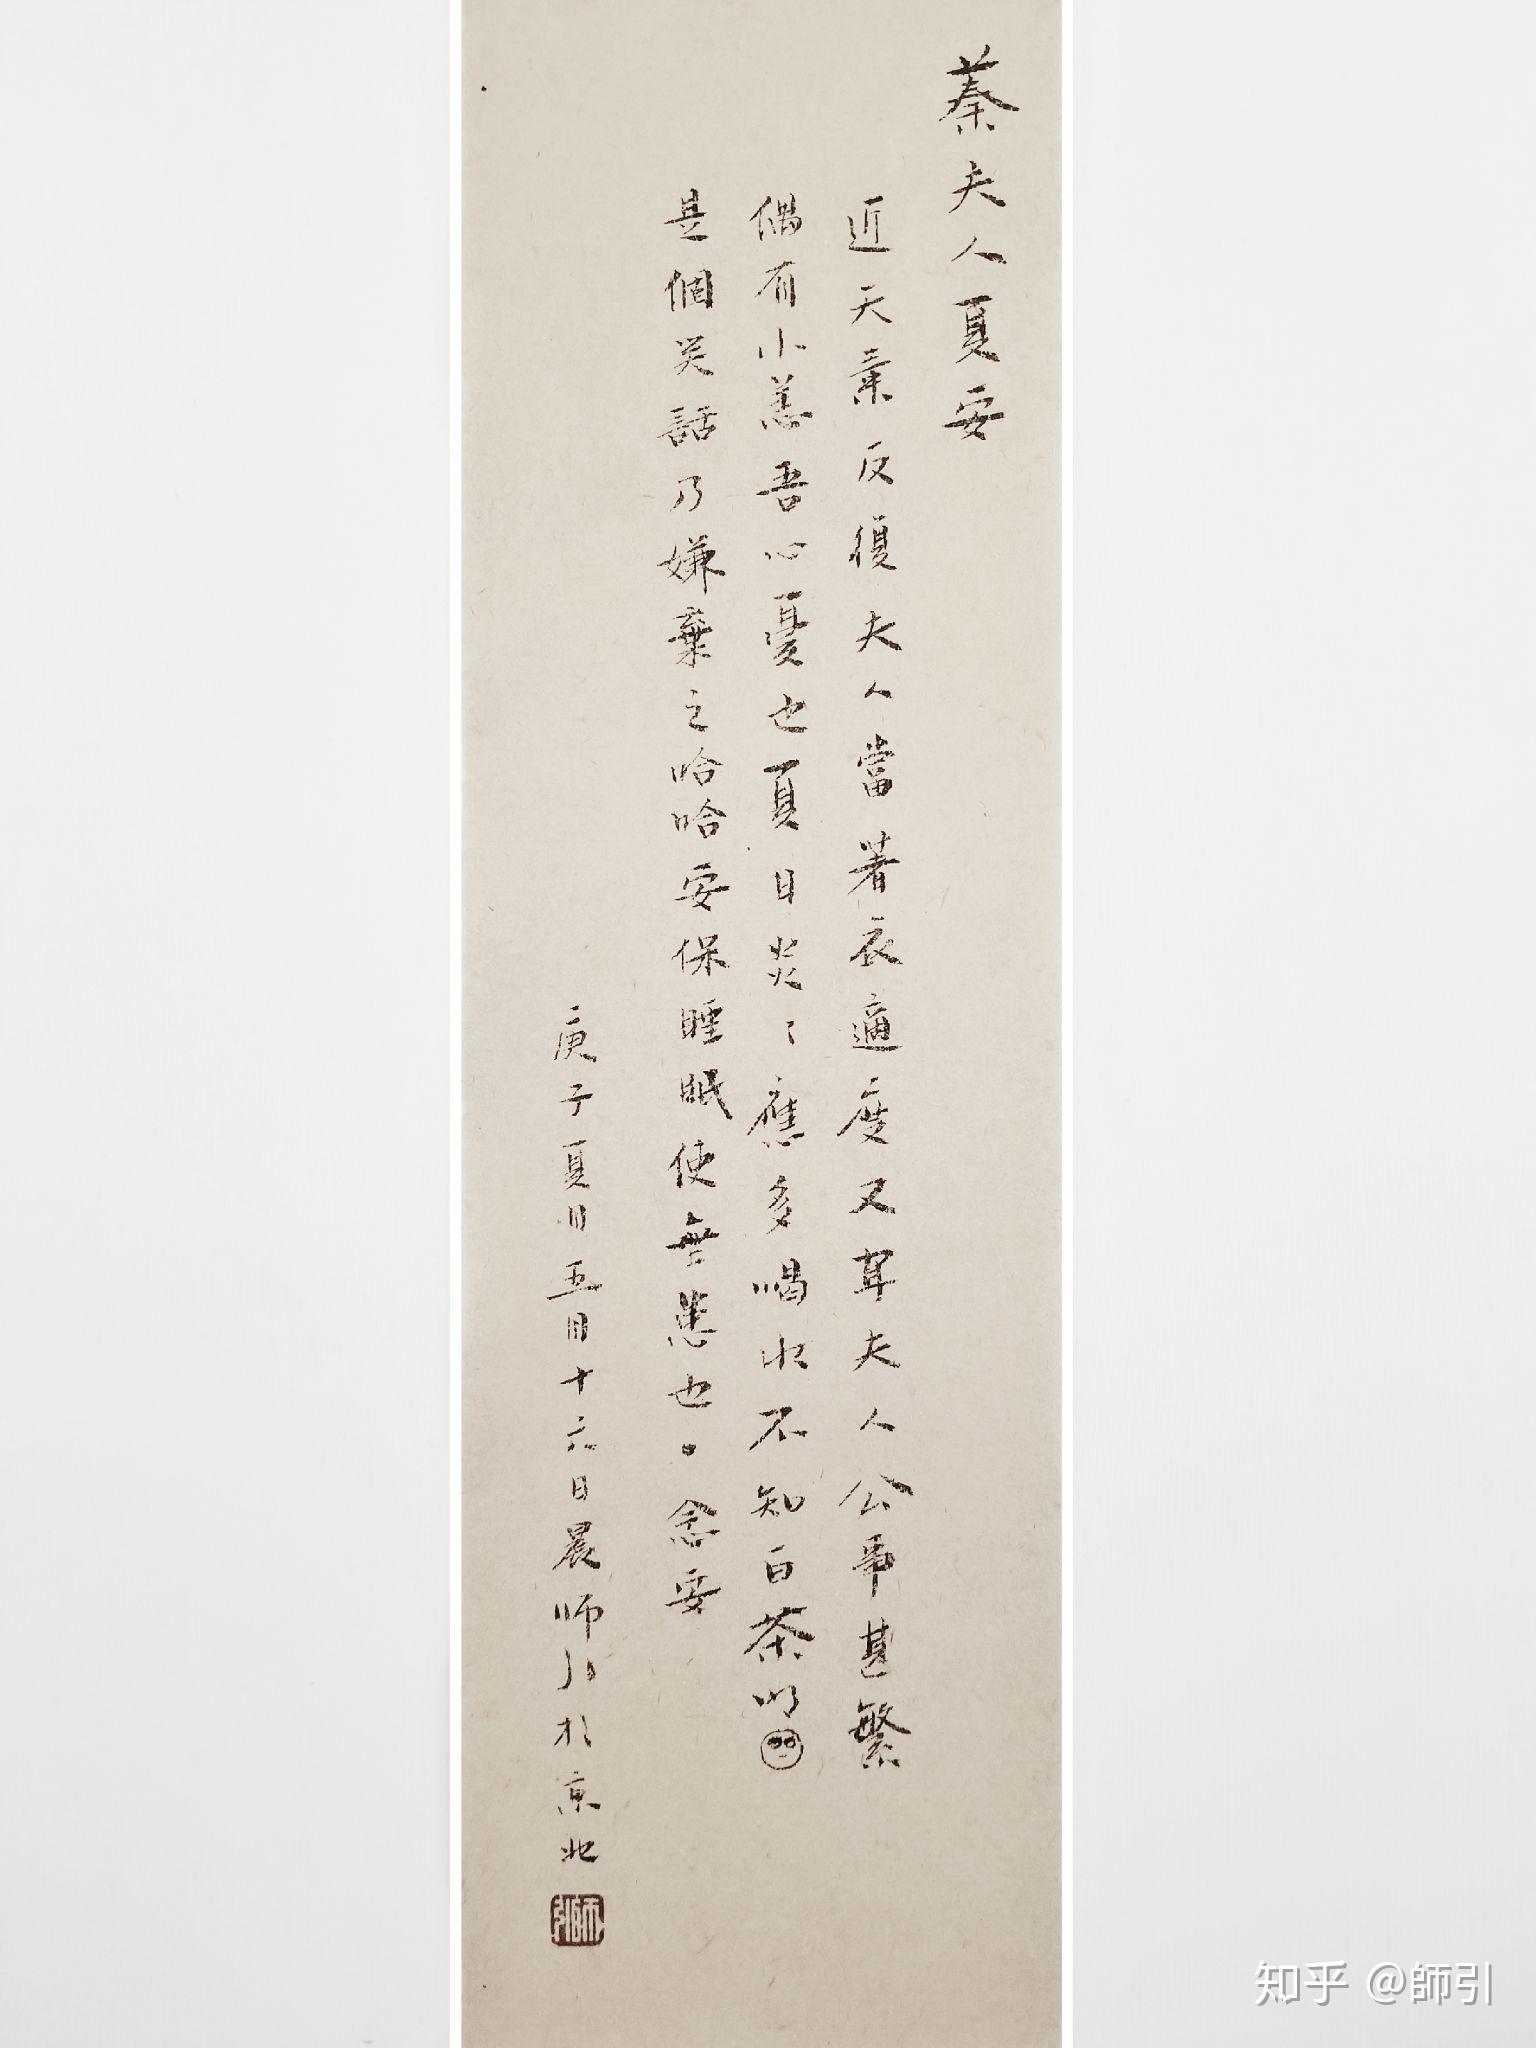 蓁夫人夏安
近天氣反復夫人當著衣適度又耳夫人公事甚繁
偶有小恙吾心憂也夏日炎〻應多喝水不知白茶以
是個笑話乃嫌棄之哈哈安保睡眠使無恙也。念安
庚子夏日五月十六日晨師引於京北
師引
知乎 @師引